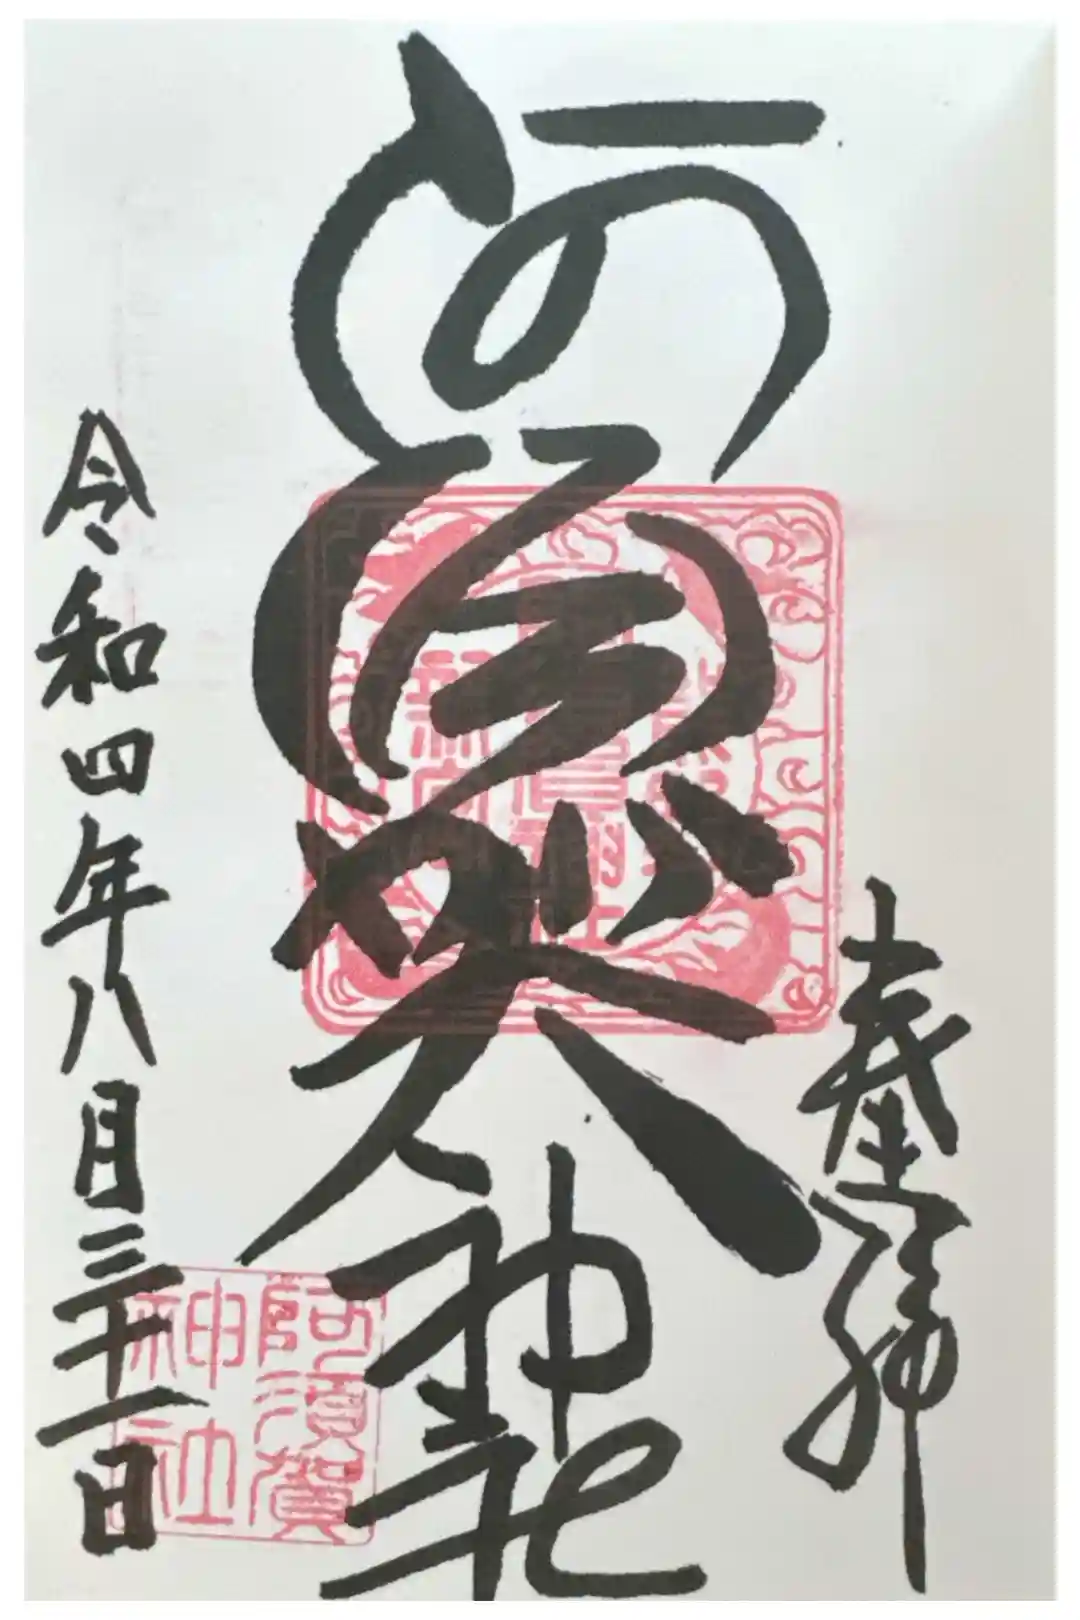 奉拝
阿須賀大神社
令和四年八月三十一日
阿須賀
神社